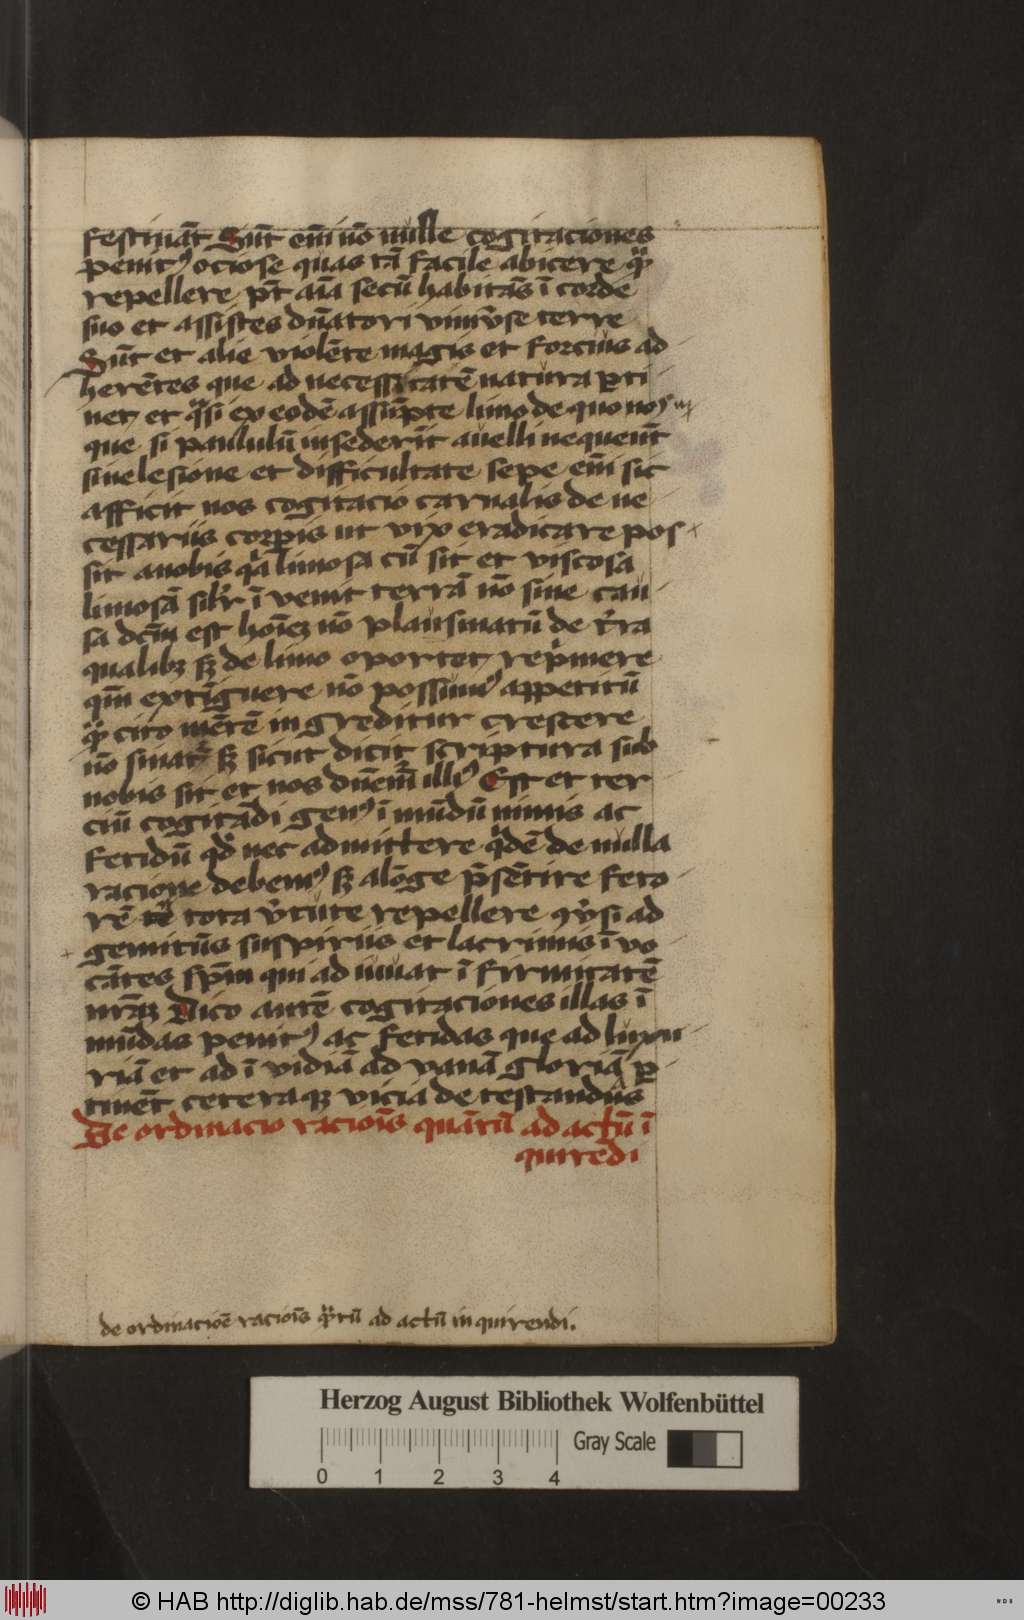 festināt Sūt em̄ nō nulle cogitaciones
penitꝰ ociose quas tā facile abicere qͣꝫ
repellere pt̄ aīa secū habitās ī corde
suo et assistēs dn̄atori vniuˀse terre
Sūt et alie violēte magis et forcius ad
herētes que ad necessitatē natura ꝑti
net et qͣsi ex eodē assūpte limo de quo nos
que si paululū insederīt auelli nequeūt
sine lesione et difficultate sepe em̄ sic
afficit nos cogitacio carnalis de ne
cessariis corꝑis ut vix eradicare pos
sit a nobis qͥa limosa cū sit et viscosa
limosā silꝉr īvenit terrā nō sine cau
sa dc̄m est hoīeꝫ nō plausmatū de tˀra
qualibꝫ sꝫ de limo oportet repͥmere
qm̄ extīguere nō possumꝰ appetitū
qͣꝫ cito mētē ingreditur crescere
nō sinatˀ sꝫ sicut dicit scriptura sub
nobis sit et nos dn̄emͬ illiꝰ Est et ter
ciū cogitādi genꝰ ī mūdū nimis ac
fetidū qd̾ nec admittere qͥdē de nulla
racione debemꝰ sꝫ a lōge p̄sētire feto
rē tota vˀtute repellere ꝯuˀsi ad
gemitūs suspiriis et lacrimis ī vo
cātes sp̄m qui ad iuuat ī firmitatē
nr̄aꝫ Dico autē cogitaciones illas ī
mūdas penitꝰ ac fetidas que ad luxu
riā et ad ī vidiā ad vanā gloriā ꝑ
tinēt ceteraqꝫ vicia detestandūs
De ordinacio racioīs quārū ad actū ī
quiredi
de ordinacioē racioīs qͣrtū ad actū inquirendi.
Herzog August Bibliothek Wolfenbüttel
Gray Scale
0 1 2 3 4
© HAB http://diglib.hab.de/mss/781-helmst/start.htm?image=00233